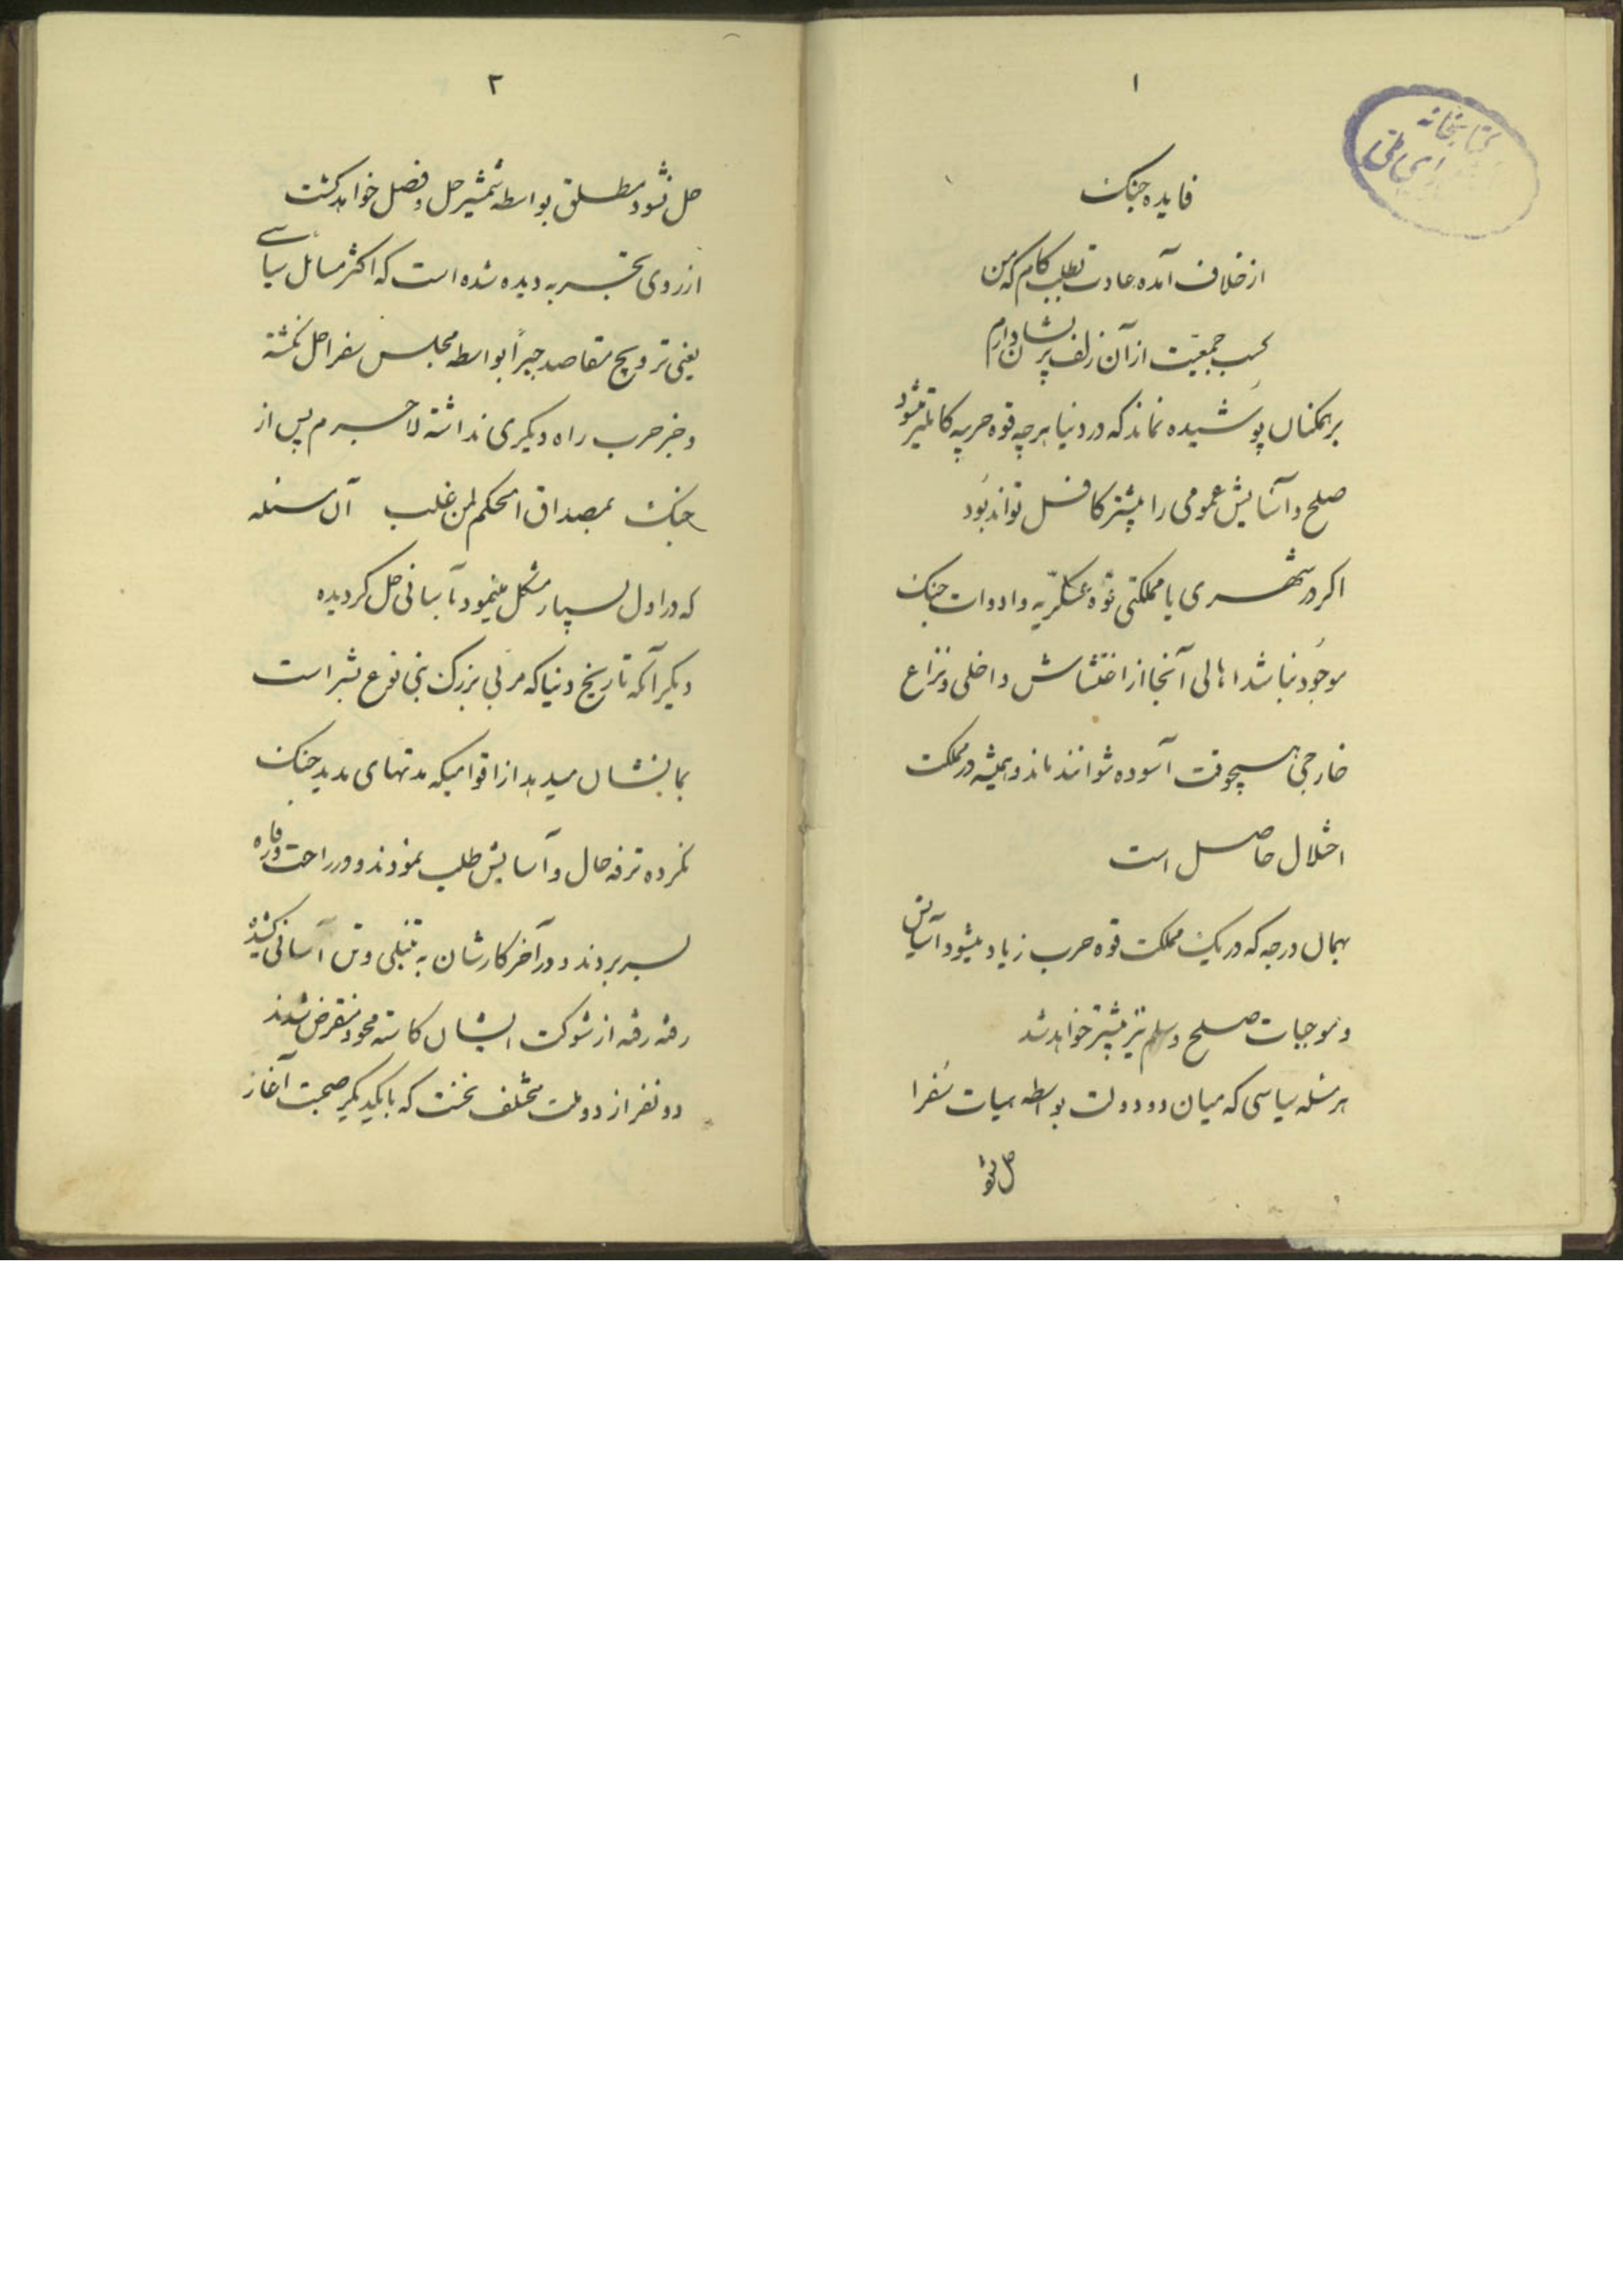 ۱
کتابخانه
فایده جنک
از خلاف آمد عادت بطلب کام که من
کسب جمعیت از آن زلف پریشان دارم
بر همکنان پوشیده نماند که در دنیا هر چه قوه حربیه کاملتر میشود
صلح و آسایش عمومی را بیشتر کافل تواند بود
اکر در شهری یا مملکتی قوّه عسکریّه و ادوات جنک
موجود نباشد اهالی آنجا از اغتشاش داخلی و نزاع
خارجی هیچوقت آسوده نتوانند ماند و همیشه در مملکت
اختلال حاصل است
بهمان درجه که در یک مملکت قوه حرب زیاد میشود آسایش
و موجبات صلح و سلم نیز بیشتر خواهد شد
هر مسئله سیاسی که میان دو دولت بواسطه هیات سفرا
حل نشود
۲
حل نشود مطلق بواسطه شمشیر حل و فصل خواهد کشت
از روی تجربه دیده شده است که اکثر مسائل سیاسی
یعنی ترویج مقاصد جبراً بواسطه مجلس سفرا حل نکشته
و جز حرب راه دیکری نداشته لاجرم پس از
جنک بمصداق الحکم لمن غلب آن مسئله
که در اول بسیار مشکل مینمود بآسانی حل کردیده
دیکر آنکه تاریخ دنیا که مربی بزرک بنی نوع بشر است
بما نشان میدهد از اقوامیکه مدتهای مدید جنک
نکرده ترفه حال و آسایش طلب نمودند و در راحت و رفاه
بسر بردند و در آخر کارشان به تنبلی و تن آسانی کشیده
رفته رفته از شوکت ایشان کاسته محو و منقرض شدند
دو نفر از دو ملت مختلف نخست که با یکدیکر صحبت آغاز